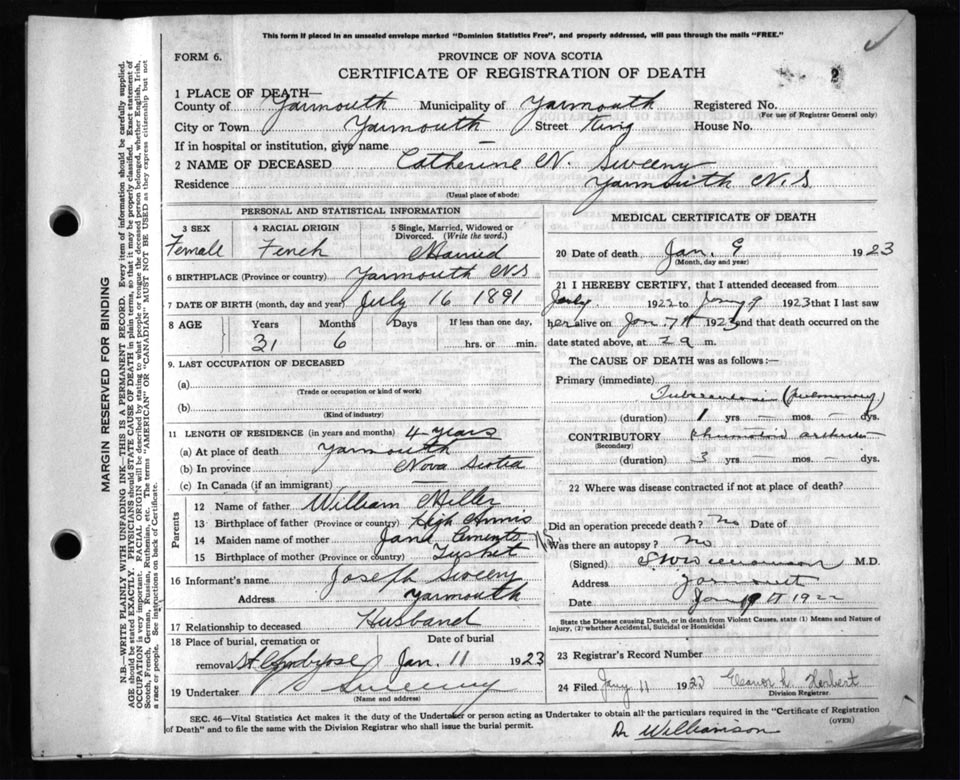 This form if placed in an unsealed envelope marked "Dominion Statistics Free", and properly addressed, will pass through the mails "FREE."
FORM 6.
PROVINCE OF NOVA SCOTIA
CERTIFICATE OF REGISTRATION OF DEATH
2
1 PLACE OF DEATH—
County of Yarmouth Municipality of Yarmouth Registered No.
(For use of Registrar General only)
City or Town Yarmouth Street King House No.
If in hospital or institution, give name
2 NAME OF DECEASED Catherine N. Sweeny
Residence Yarmouth N.S
(Usual place of abode)
MARGIN RESERVED FOR BINDING
N.B.—WRITE PLAINLY WITH UNFADING INK—THIS IS A PERMANENT RECORD. Every item of information should be carefully supplied.
AGE should be stated EXACTLY. PHYSICIANS should STATE CAUSE OF DEATH in plain terms, so that it may be properly classified. Exact statement of
OCCUPATION is very important. RACIAL ORIGIN will be described by stating to what people or tongue the deceased person belonged, whether English, Irish,
Scotch, French, German, Russian, Ruthenian, etc. The terms "AMERICAN" or "CANADIAN" MUST NOT BE USED as they express citizenship but not
a race or people. See instructions on back of Certificate.
PERSONAL AND STATISTICAL INFORMATION
3 SEX 4 RACIAL ORIGIN 5 Single, Married, Widowed or
Divorced. (Write the word.)
Female Fench Married
6 BIRTHPLACE (Province or country) Yarmouth NS
7 DATE OF BIRTH (month, day and year) July 16 1891
8 AGE Years Months Days If less than one day,
31 6 hrs. or min.
9. LAST OCCUPATION OF DECEASED
(a)
(Trade or occupation or kind of work)
(b)
(Kind of industry)
11 LENGTH OF RESIDENCE (in years and months) 4 years
(a) At place of death Yarmouth
(b) In province Nova Scotia
(c) In Canada (if an immigrant) —
Parents
12 Name of father William Miller
13 Birthplace of father (Province or country)
14 Maiden name of mother Jane
15 Birthplace of mother (Province or country) Tusket
16 Informant's name Joseph Sweeny
Address Yarmouth
17 Relationship to deceased Husband
18 Place of burial, cremation or Date of burial
removal St Ambrose Jan. 11 1923
19 Undertaker Sweeny
(Name and address)
MEDICAL CERTIFICATE OF DEATH
20 Date of death Jan. 9 1923
(Month, day and year)
21 I HEREBY CERTIFY, that I attended deceased from
July 1922 to Jany 9 1923 that I last saw
her alive on Jan 7th 1923 and that death occurred on the
date stated above, at 2 a m.
The CAUSE OF DEATH was as follows:—
Primary (immediate)
Tuberculosis (pulmonary)
(duration) 1 yrs — mos. — dys.
CONTRIBUTORY
(Secondary)
(duration) 3 yrs. — mos. — dys.
22 Where was disease contracted if not at place of death?
Did an operation precede death? no Date of
Was there an autopsy? no
(Signed) M.D.
Address Yarmouth
Date 1922
State the Disease causing Death, or in death from Violent Causes, state (1) Means and Nature of
Injury, (2) whether Accidental, Suicidal or Homicidal
23 Registrar's Record Number
24 Filed Jany 11 1923 Eleanor L. Herbert
Division Registrar
SEC. 46—Vital Statistics Act makes it the duty of the Undertaker or person acting as Undertaker to obtain all the particulars required in the "Certificate of Registration
of Death" and to file the same with the Division Registrar who shall issue the burial permit.
(OVER)
Dr Williamson